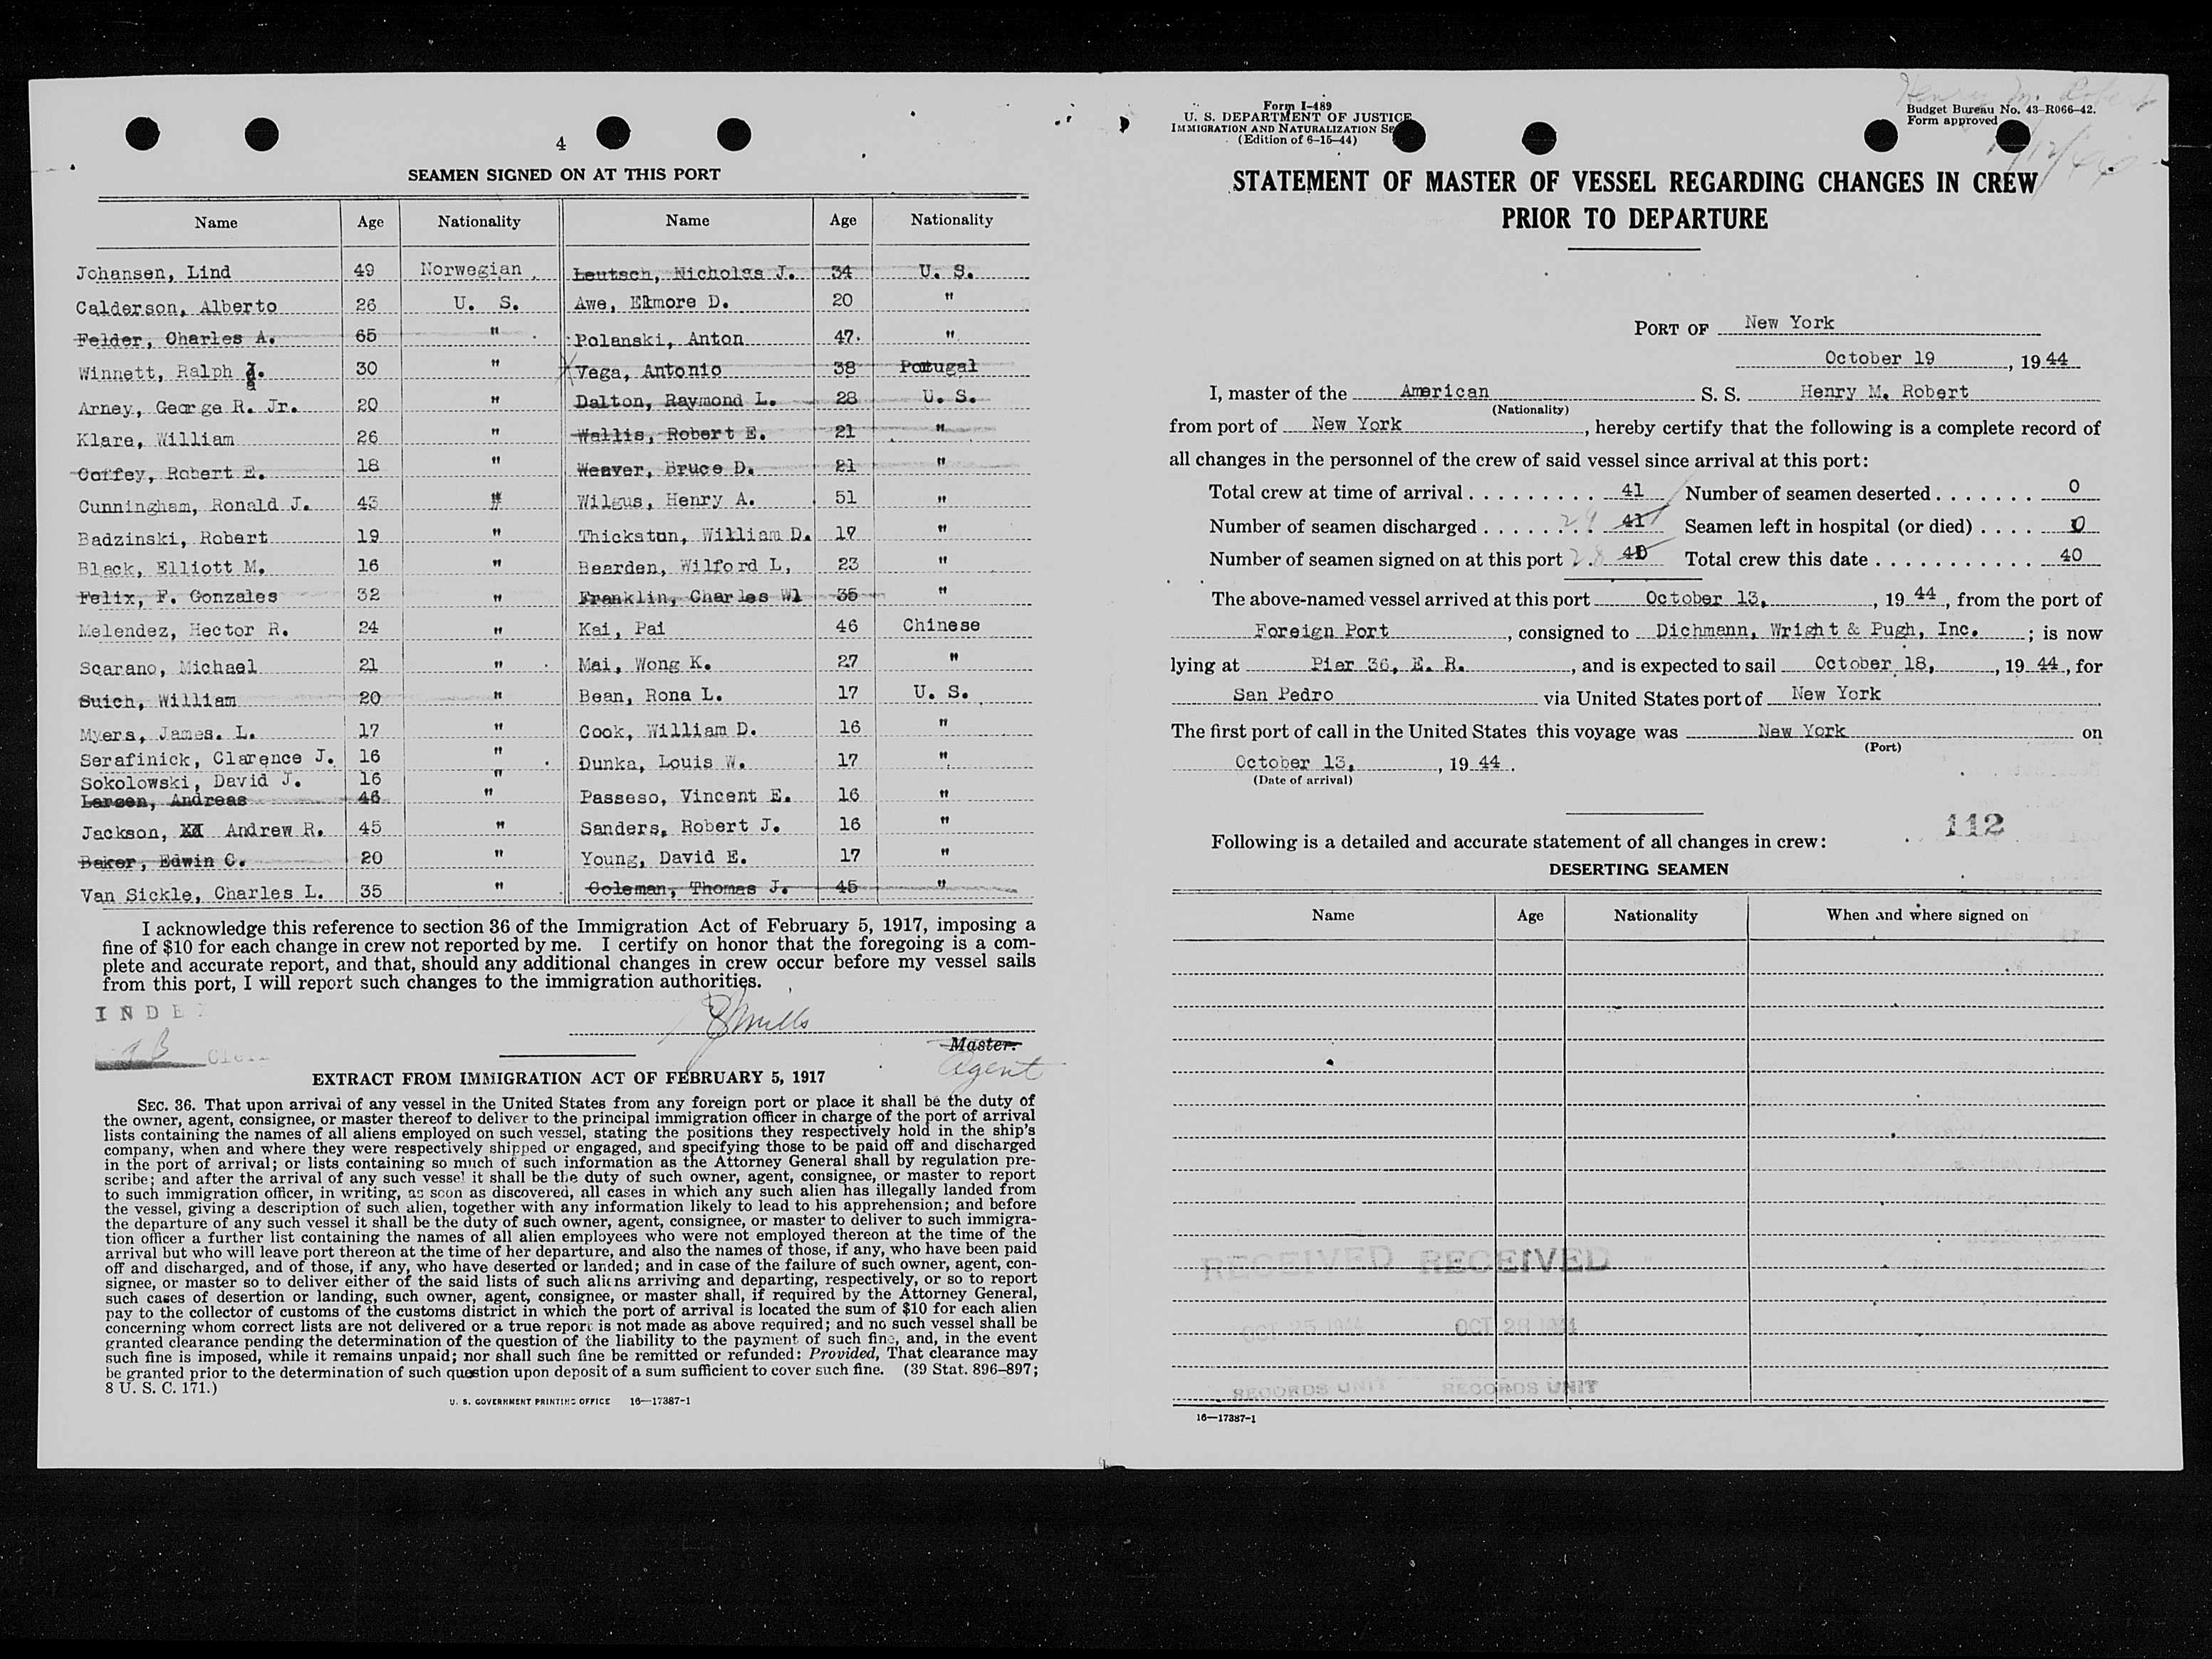 4
SEAMEN SIGNED ON AT THIS PORT
Name Age Nationality Name Age Nationality
Johansen, Lind 49 Norwegian Leutsch, Nicholas J. 34 U. S.
Calderson, Alberto 26 U. S. Awe, Elmore D. 20 "
Felder, Charles A. 65 " Polanski, Anton 47. "
Winnett, Ralph J. 30 " Vega, Antonio 38 Potugal
Arney, George R. Jr. 20 " Dalton, Raymond L. 28 U. S.
Klare, William 26 " Wallis, Robert E. 21 "
Coffey, Robert E. 18 " Weaver, Bruce D. 21 "
Cunningham, Ronald J. 43 " Wilgus, Henry A. 51 "
Badzinski, Robert 19 " Thickstun, William D. 17 "
Black, Elliott M. 16 " Bearden, Wilford L, 23 "
Felix, F. Gonzales 32 " Franklin, Charles Wl 35 "
Melendez, Hector R. 24 " Kai, Pai 46 Chinese
Scarano, Michael 21 " Mai, Wong K. 27 "
Suich, William 20 " Bean, Rona L. 17 U. S.
Myers, James. L. 17 " Cook, William D. 16 "
Serafinick, Clarence J. 16 " Dunka, Louis W. 17 "
Sokolowski, David J. 16 "
Larsen, Andreas 46 " Passeso, Vincent E. 16 "
Jackson, Andrew R. 45 " Sanders, Robert J. 16 "
Baker, Edwin C. 20 " Young, David E. 17 "
Van Sickle, Charles L. 35 " Coleman, Thomas J. 45 "
I acknowledge this reference to section 36 of the Immigration Act of February 5, 1917, imposing a
fine of $10 for each change in crew not reported by me. I certify on honor that the foregoing is a com-
plete and accurate report, and that, should any additional changes in crew occur before my vessel sails
from this port, I will report such changes to the immigration authorities.
INDE
Master.
Agent
EXTRACT FROM IMMIGRATION ACT OF FEBRUARY 5, 1917
SEC. 36. That upon arrival of any vessel in the United States from any foreign port or place it shall be the duty of
the owner, agent, consignee, or master thereof to deliver to the principal immigration officer in charge of the port of arrival
lists containing the names of all aliens employed on such vessel, stating the positions they respectively hold in the ship's
company, when and where they were respectively shipped or engaged, and specifying those to be paid off and discharged
in the port of arrival; or lists containing so much of such information as the Attorney General shall by regulation pre-
scribe; and after the arrival of any such vessel it shall be the duty of such owner, agent, consignee, or master to report
to such immigration officer, in writing, as soon as discovered, all cases in which any such alien has illegally landed from
the vessel, giving a description of such alien, together with any information likely to lead to his apprehension; and before
the departure of any such vessel it shall be the duty of such owner, agent, consignee, or master to deliver to such immigra-
tion officer a further list containing the names of all alien employees who were not employed thereon at the time of the
arrival but who will leave port thereon at the time of her departure, and also the names of those, if any, who have been paid
off and discharged, and of those, if any, who have deserted or landed; and in case of the failure of such owner, agent, con-
signee, or master so to deliver either of the said lists of such aliens arriving and departing, respectively, or so to report
such cases of desertion or landing, such owner, agent, consignee, or master shall, if required by the Attorney General,
pay to the collector of customs of the customs district in which the port of arrival is located the sum of $10 for each alien
concerning whom correct lists are not delivered or a true report is not made as above required; and no such vessel shall be
granted clearance pending the determination of the question of the liability to the payment of such fine, and, in the event
such fine is imposed, while it remains unpaid; nor shall such fine be remitted or refunded: Provided, That clearance may
be granted prior to the determination of such question upon deposit of a sum sufficient to cover such fine. (39 Stat. 896–897;
8 U. S. C. 171.)
U. S. GOVERNMENT PRINTING OFFICE 16—17387-1
Henry M. Robert
Form I-489
U. S. DEPARTMENT OF JUSTICE
IMMIGRATION AND NATURALIZATION SE
(Edition of 6-15-44)
Budget Bureau No. 43-R066-42.
Form approved
STATEMENT OF MASTER OF VESSEL REGARDING CHANGES IN CREW
PRIOR TO DEPARTURE
PORT OF New York
October 19, 1944
I, master of the American S. S. Henry M. Robert
(Nationality)
from port of New York, hereby certify that the following is a complete record of
all changes in the personnel of the crew of said vessel since arrival at this port:
Total crew at time of arrival 41 Number of seamen deserted 0
Number of seamen discharged 29 41 Seamen left in hospital (or died) 0
Number of seamen signed on at this port 28 40 Total crew this date 40
The above-named vessel arrived at this port October 13, 1944, from the port of
Foreign Port, consigned to Dichmann, Wright & Pugh, Inc.; is now
lying at Pier 36, E. R., and is expected to sail October 18, 1944, for
San Pedro via United States port of New York
The first port of call in the United States this voyage was New York on
(Port)
October 13, 1944.
(Date of arrival)
112
Following is a detailed and accurate statement of all changes in crew:
DESERTING SEAMEN
Name Age Nationality When and where signed on
RECEIVED RECEIVED
OCT 25 1944 OCT 28 1944
RECORDS UNIT RECORDS UNIT
16—17387-1